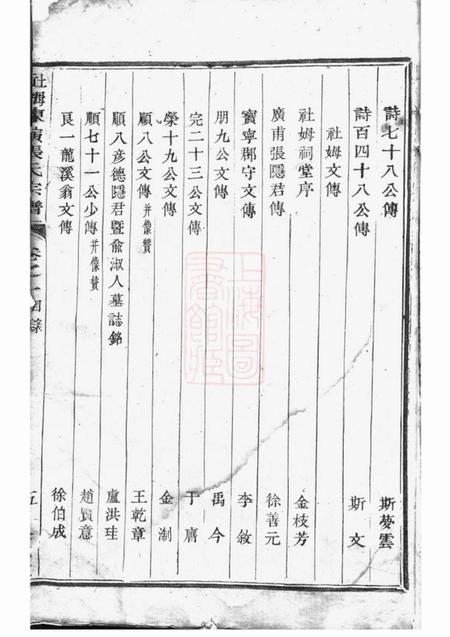 詩七十八公傳 斯夢雲
詩百四十八公傳 斯文
社姆文傳
社姆祠堂序 金枝芳
廣甫張隱君傳 徐善元
寶寧郡守文傳 李敘
朋九公文傳 禹今
完二十三公文傳 于
榮十九公文傳 金淛
順八公文傳并像贊 王乾章
順八彥德隱君暨俞淑人墓誌銘 盧洪珪
順七十一公少傳并像贊 趙賢意
艮一龍溪翁文傳 徐伯成
社姆東演張氏宗譜 卷之一目錄 五
上海圖書館藏